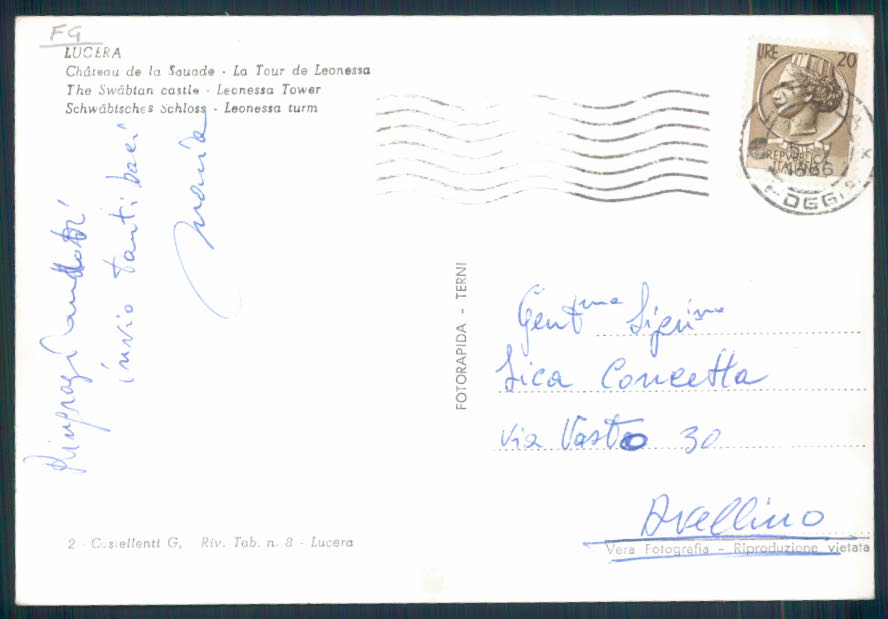 FG
LUCERA
Château de la Souade - La Tour de Leonessa
The Swâbtan castle - Leonessa Tower
Schwäbisches Schloss - Leonessa turm
LIRE 20
REPVBBLICA
ITALIANA
FOGGIA
Ringraziandoti
invio tanti baci
Maria
FOTORAPIDA - TERNI
Gentma Sig.ina
Sica Concetta
Via Vasto 30
Avellino
Vera Fotografia - Riproduzione vietata
2 - Castellenti G. Riv. Tab. n. 8 - Lucera